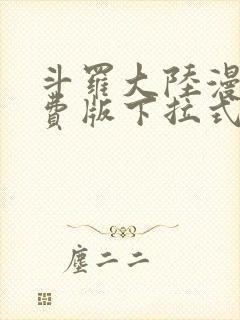 斗羅大陸漫
費版下拉式
塵二二